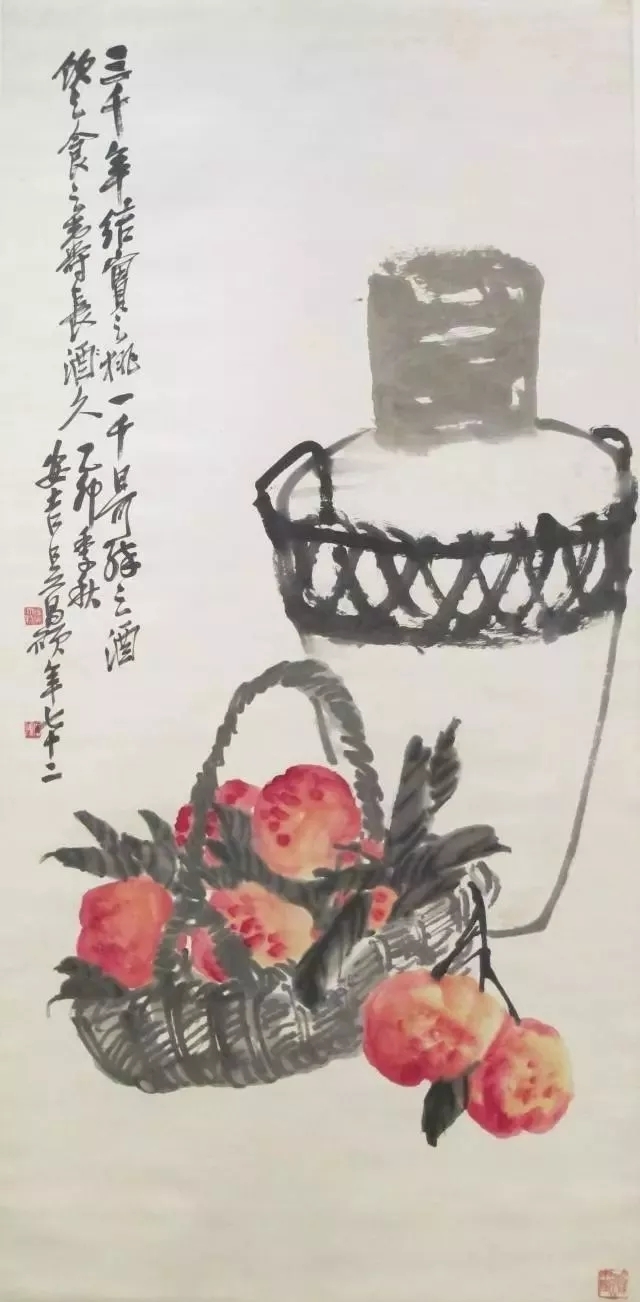 三千年結實之桃一千日可醉之酒
飲之食之壽長酒久
乙卯季秋
安吉吳昌碩年七十二